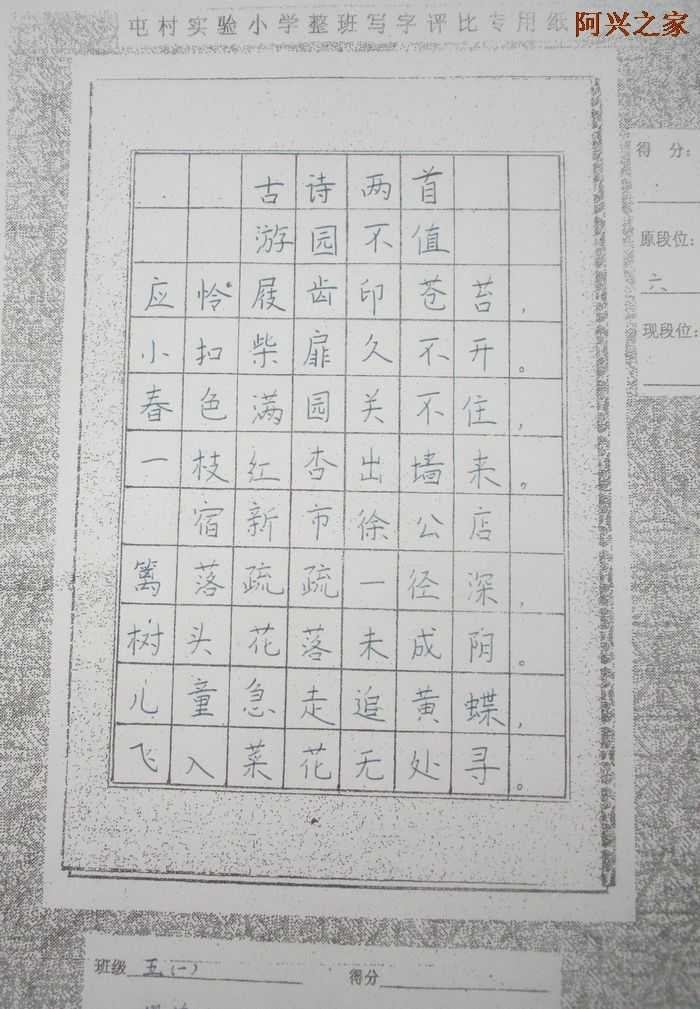 屯村实验小学整班写字评比专用纸
阿兴之家
得 分:
原段位:
六
现段位:
古诗两首
游园不值
应怜屐齿印苍苔,
小扣柴扉久不开。
春色满园关不住,
一枝红杏出墙来。
宿新市徐公店
篱落疏疏一径深,
树头花落未成阴。
儿童急走追黄蝶,
飞入菜花无处寻。
班级 五(一) 得分